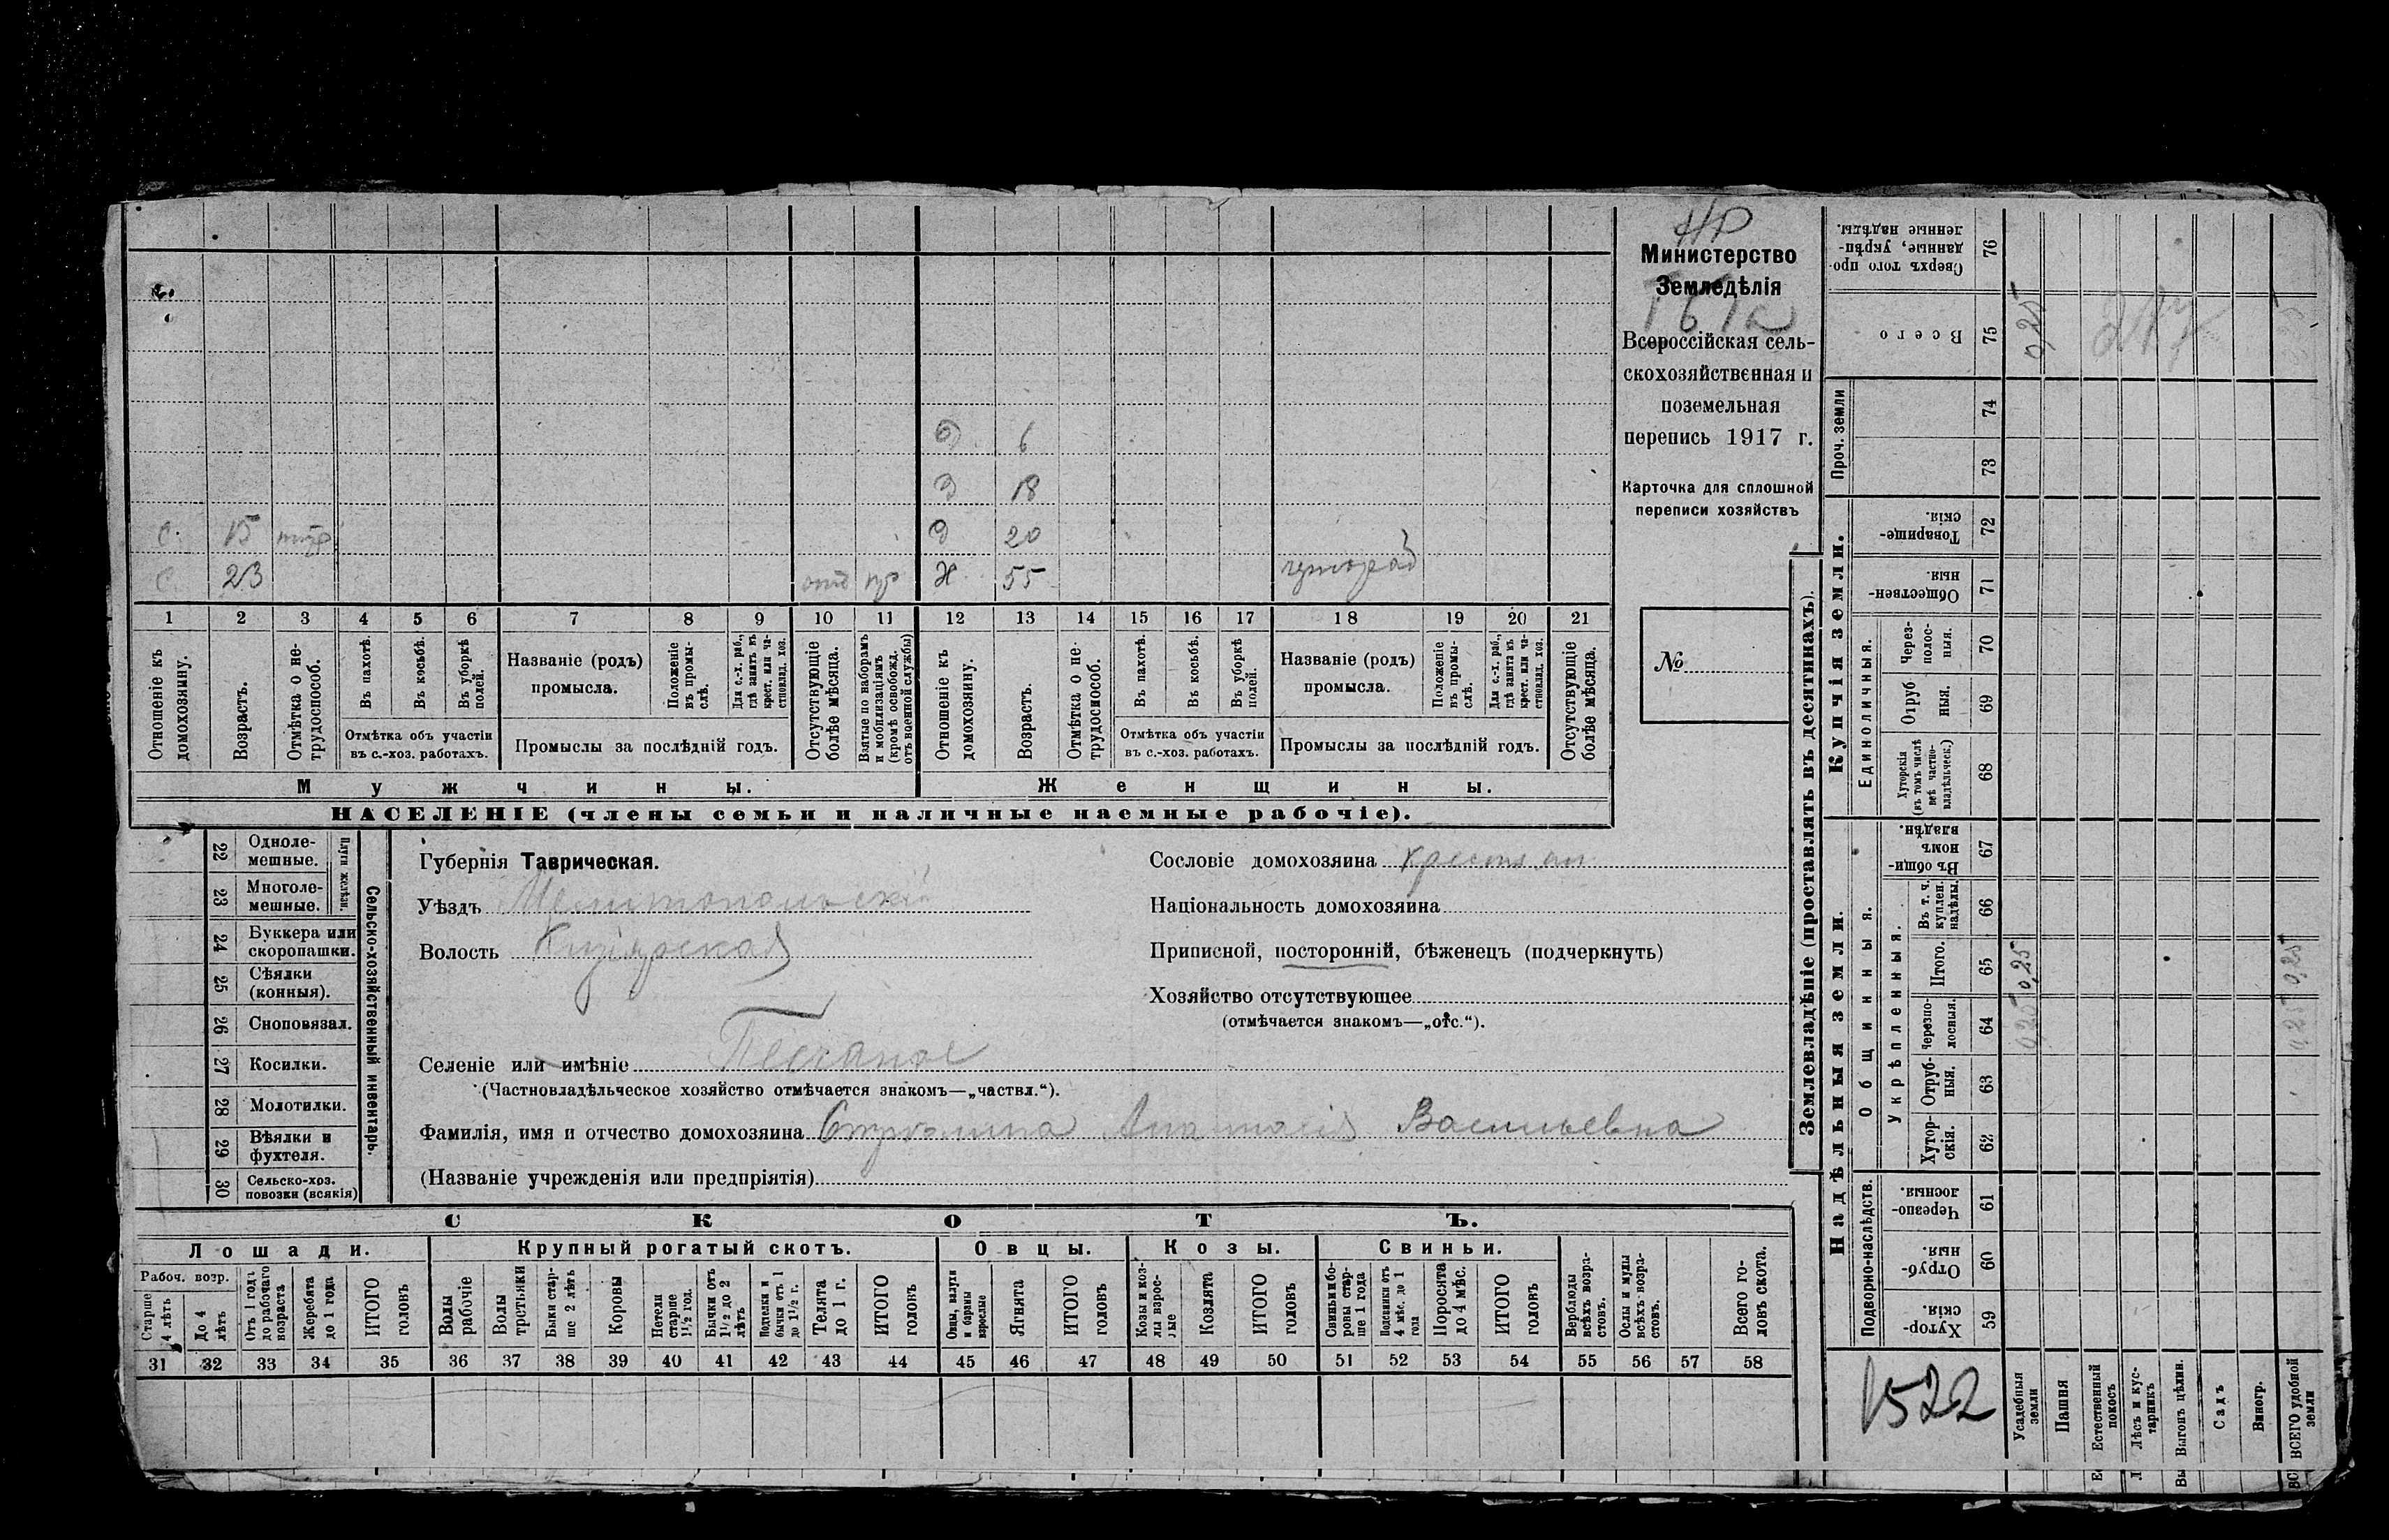 НР
Министерство
Земледѣлія
Всероссійская сель-
скохозяйственная и
поземельная
перепись 1917 г.
Карточка для сплошной
переписи хозяйствъ
№
Д. 6
Д 18
С. 15 Д 20
С. 23 отс Ж. 55
1 2 3 4 5 6 7 8 9 10 11 12 13 14 15 16 17 18 19 20 21
Отношеніе къ домохозяину.
Возрастъ.
Отмѣтка о не-трудоспособ.
Въ пахотѣ.
Въ косьбѣ.
Въ уборкѣ полей.
Отмѣтка объ участіи
въ с.-хоз. работахъ.
Названіе (родъ)
промысла.
Положеніе въ промы-слѣ.
Для с.-х. раб., гдѣ занятъ въ крест. или ча-стновлад. хоз.
Промыслы за послѣдній годъ.
Отсутствующіе болѣе мѣсяца.
Взятые по наборамъ и мобилизаціямъ (кромѣ освобожд. отъ военной службы)
Отношеніе къ домохозяину.
Возрастъ.
Отмѣтка о не-трудоспособ.
Въ пахотѣ.
Въ косьбѣ.
Въ уборкѣ полей.
Отмѣтка объ участіи
въ с.-хоз. работахъ.
Названіе (родъ)
промысла.
Положеніе въ промы-слѣ.
Для с.-х. раб., гдѣ занята въ крест. или ча-стновлад. хоз.
Промыслы за послѣдній годъ.
Отсутствующіе болѣе мѣсяца.
Мужчины. Женщины.
НАСЕЛЕНІЕ (члены семьи и наличные наемные рабочіе).
22 Одноле-мешные.
23 Многоле-мешные.
Плуги желѣзн.
24 Буккера или скоропашки.
25 Сѣялки (конныя).
26 Сноповязал.
27 Косилки.
28 Молотилки.
29 Вѣялки и фухтеля.
30 Сельско-хоз. повозки (всякія)
Сельско-хозяйственный инвентарь.
Губернія Таврическая.
Уѣздъ Мелитопольскій
Волость Кизіярская
Селеніе или имѣніе Песчаное
(Частновладѣльческое хозяйство отмѣчается знакомъ—„частвл.“).
Фамилія, имя и отчество домохозяина Анастасія Васильевна
(Названіе учрежденія или предпріятія)
Сословіе домохозяина крестьян
Національность домохозяина
Приписной, посторонній, бѣженецъ (подчеркнуть)
Хозяйство отсутствующее
(отмѣчается знакомъ—„отс.“).
СКОТЪ.
Лошади. Крупный рогатый скотъ. Овцы. Козы. Свиньи.
Рабоч. возр.
Старше 4 лѣтъ
До 4 лѣтъ
Отъ 1 года до рабочаго возраста
Жеребята до 1 года
ИТОГО головъ
Волы рабочіе
Волы третьяки
Быки стар-ше 2 лѣтъ
Коровы
Нетели старше 1½ год.
Бычки отъ 1½ до 2 лѣтъ
Подтелки и бычки отъ 1 до 1½ г.
Телята до 1 г.
ИТОГО головъ
Овцы, валухи и бараны взрослые
Ягнята
ИТОГО головъ
Козы и коз-лы взрос-лые
Козлята
ИТОГО головъ
Свиньи и бо-ровы стар-ше 1 года
Подсвинки отъ 4 мѣс. до 1 года
Поросята до 4 мѣс.
ИТОГО головъ
Верблюды всѣхъ возра-стовъ.
Ослы и мулы всѣхъ возра-стовъ.
Всего го-ловъ скота.
31 32 33 34 35 36 37 38 39 40 41 42 43 44 45 46 47 48 49 50 51 52 53 54 55 56 57 58
Землевладѣніе (проставлять въ десятинахъ).
Надѣльныя земли.
Купчія земли.
Проч. земли
Подворно-наслѣдств.
Общинныя.
Укрѣпленныя.
Единоличныя.
Сверхъ того про-данные, укрѣп-ленные надѣлы. 76
Всего 75 0,25
74
73
Товарище-скія. 72
Обществен-ныя. 71
Через-полос-ныя. 70
Отруб ныя. 69
Хуторскія (въ томъ числѣ всѣ частно-владѣльческ.) 68
Въ общи-номъ владѣн. 67
Въ т. ч. куплен. надѣлы. 66
Итого. 65 0,25 0,25
Черезпо-лосныя. 64 0,25 0,25
Отруб-ныя. 63
Хутор-скія. 62
Черезпо-лосныя. 61
Отруб-ныя. 60
Хутор-скія. 59
1522
Усадебныя земли
Пашня
Естественный покосъ
Лѣсъ и кус-тарникъ
Выгонъ цѣлин.
Садъ
Виногр.
ВСЕГО удобной земли